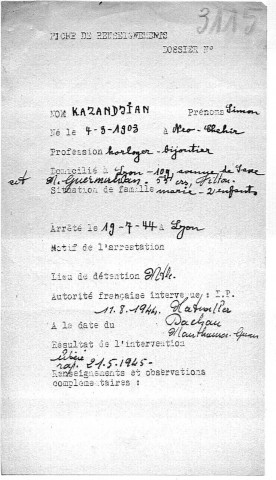 3115
FICHE DE RENSEIGNEMENTS
DOSSIER N°
NOM KAZANDJIAN Prénoms Simon
Né le 4-9-1903 à Neo-Chehir
Profession horloger-bijoutier
Domicilié à Lyon - 109 avenue de Saxe
act. M.
Situation de famille marié - 2 enfants
Arrêté le 19-7-44 à Lyon
Motif de l'arrestation
Lieu de détention Ntl.
Autorité française intervenue : I.P.
11.8.1944. Natzwiller
A la date du Dachau
Mauthausen
Résultat de l'intervention
libéré
rap. 21.5.1945-
Renseignements et observations
complémentaires :